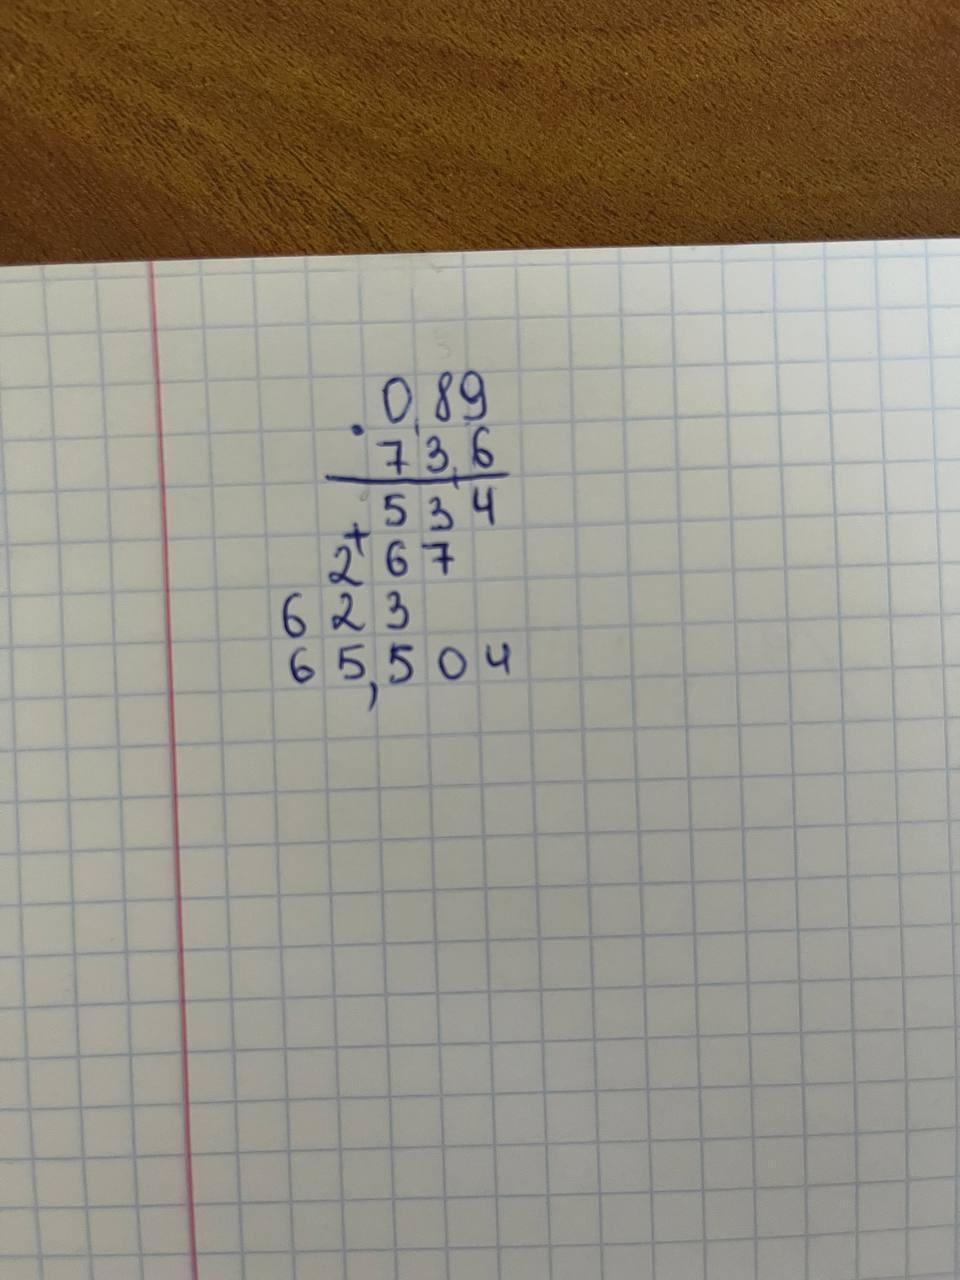 0,89
· 73,6
534
+ 267
623
65,504